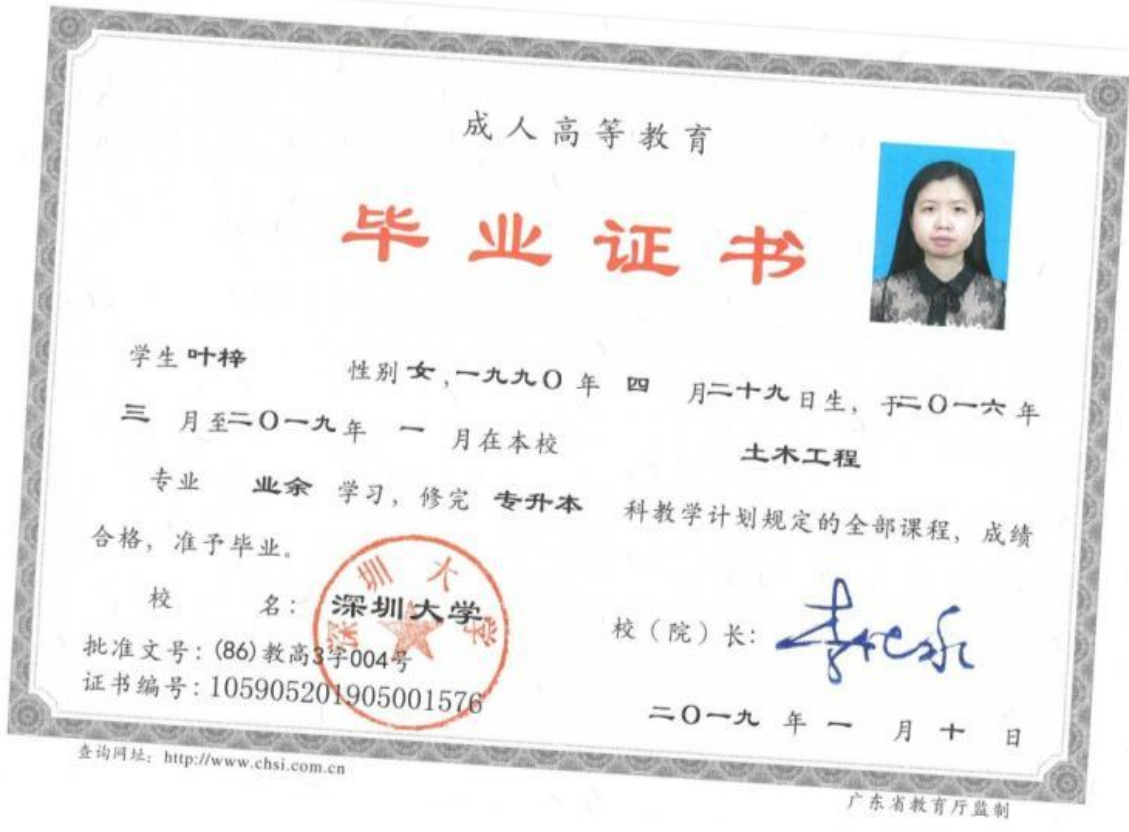 成人高等教育
毕业证书
学生 叶梓 性别 女，一九九〇 年 四 月二十九日生，于二〇一六年
三 月至二〇一九年 一 月在本校 土木工程
专业 业余 学习，修完 专升本 科教学计划规定的全部课程，成绩
合格，准予毕业。
校 名：深圳大学
深圳大学
校（院）长：
批准文号：(86)教高3字004号
证书编号：105905201905001576
二〇一九 年 一 月 十 日
查询网址：http://www.chsi.com.cn
广东省教育厅监制